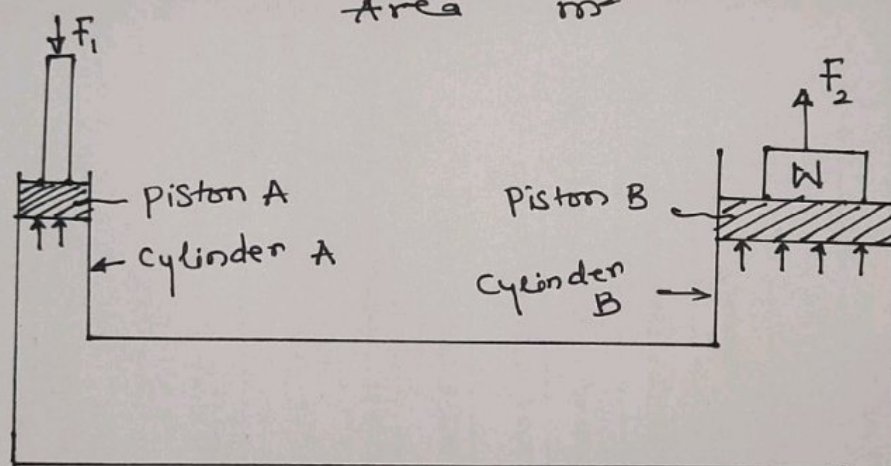 Area m²
F₁
F₂
W
Piston A
Piston B
Cylinder A
Cylinder
B